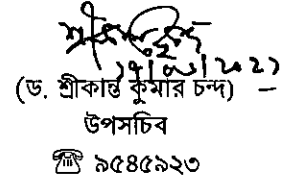 (ড. শ্রীকান্ত কুমার চন্দ)
উপসচিব
☏ ৯৫৪৫৯২৩